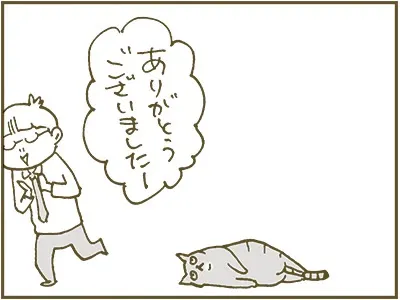 ありがとう
ございましたー